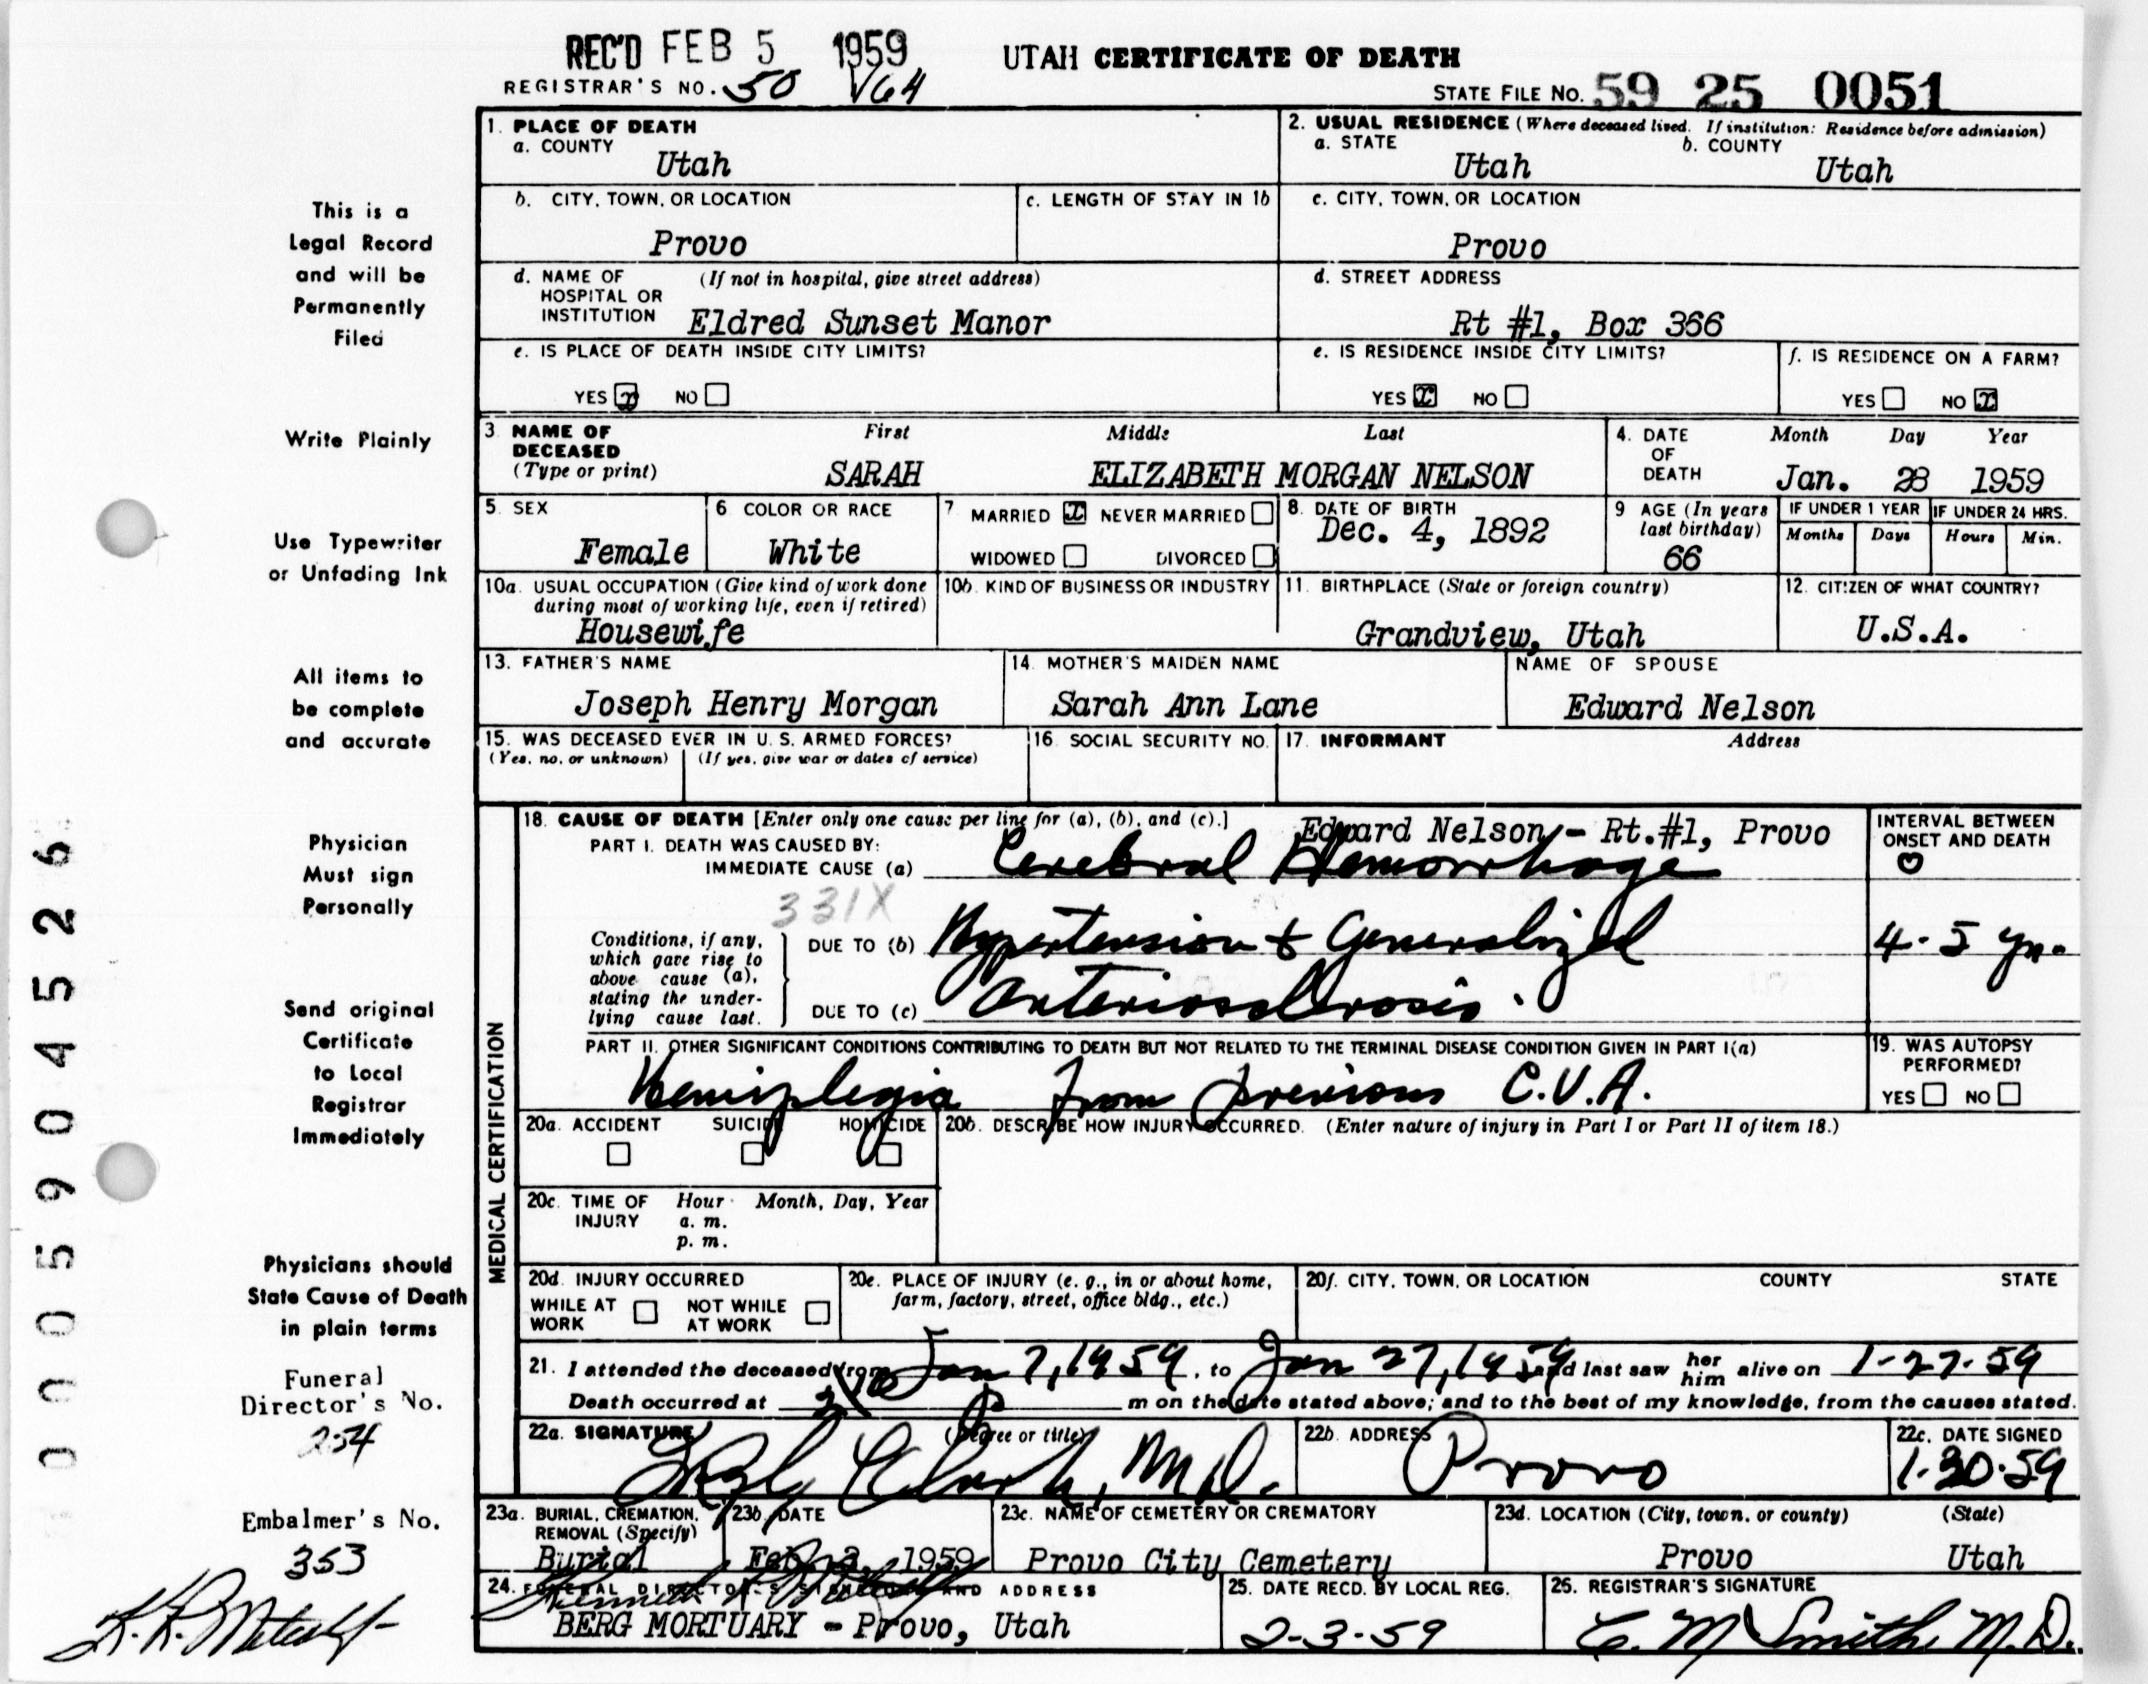 REC'D FEB 5 1959
UTAH CERTIFICATE OF DEATH
REGISTRAR'S NO. 50 V64
STATE FILE No. 59 25 0051
1. PLACE OF DEATH
a. COUNTY
Utah
2. USUAL RESIDENCE (Where deceased lived. If institution: Residence before admission)
a. STATE b. COUNTY
Utah Utah
b. CITY, TOWN, OR LOCATION
Provo
c. LENGTH OF STAY IN 1b
c. CITY, TOWN, OR LOCATION
Provo
d. NAME OF HOSPITAL OR INSTITUTION (If not in hospital, give street address)
Eldred Sunset Manor
d. STREET ADDRESS
Rt #1, Box 366
e. IS PLACE OF DEATH INSIDE CITY LIMITS?
YES x NO
e. IS RESIDENCE INSIDE CITY LIMITS?
YES x NO
f. IS RESIDENCE ON A FARM?
YES NO x
3. NAME OF DECEASED (Type or print)
First Middle Last
SARAH ELIZABETH MORGAN NELSON
4. DATE OF DEATH
Month Day Year
Jan. 28 1959
5. SEX
Female
6. COLOR OR RACE
White
7. MARRIED x NEVER MARRIED
WIDOWED DIVORCED
8. DATE OF BIRTH
Dec. 4, 1892
9. AGE (In years last birthday)
66
IF UNDER 1 YEAR
Months Days
IF UNDER 24 HRS.
Hours Min.
10a. USUAL OCCUPATION (Give kind of work done
during most of working life, even if retired)
Housewife
10b. KIND OF BUSINESS OR INDUSTRY
11. BIRTHPLACE (State or foreign country)
Grandview, Utah
12. CITIZEN OF WHAT COUNTRY?
U.S.A.
13. FATHER'S NAME
Joseph Henry Morgan
14. MOTHER'S MAIDEN NAME
Sarah Ann Lane
NAME OF SPOUSE
Edward Nelson
15. WAS DECEASED EVER IN U. S. ARMED FORCES?
(Yes, no, or unknown) (If yes, give war or dates of service)
16. SOCIAL SECURITY NO.
17. INFORMANT Address
Edward Nelson - Rt.#1, Provo
MEDICAL CERTIFICATION
18. CAUSE OF DEATH [Enter only one cause per line for (a), (b), and (c).]
PART I. DEATH WAS CAUSED BY:
IMMEDIATE CAUSE (a) Cerebral Hemorrhage
331X
INTERVAL BETWEEN
ONSET AND DEATH
0
Conditions, if any,
which gave rise to
above cause (a),
stating the under-
lying cause last.
DUE TO (b) Hypertension + Generalized
4-5 yr.
DUE TO (c) arteriosclerosis.
PART II. OTHER SIGNIFICANT CONDITIONS CONTRIBUTING TO DEATH BUT NOT RELATED TO THE TERMINAL DISEASE CONDITION GIVEN IN PART I(a)
Hemiplegia from previous C.V.A.
19. WAS AUTOPSY
PERFORMED?
YES NO
20a. ACCIDENT SUICIDE HOMICIDE
20b. DESCRIBE HOW INJURY OCCURRED. (Enter nature of injury in Part I or Part II of item 18.)
20c. TIME OF INJURY
Hour Month, Day, Year
a. m.
p. m.
20d. INJURY OCCURRED
WHILE AT WORK NOT WHILE AT WORK
20e. PLACE OF INJURY (e. g., in or about home,
farm, factory, street, office bldg., etc.)
20f. CITY, TOWN, OR LOCATION COUNTY STATE
21. I attended the deceased from Jan 7, 1959, to Jan 27, 1959 and last saw her him alive on 1-27-59
Death occurred at m on the date stated above; and to the best of my knowledge, from the causes stated.
22a. SIGNATURE (Degree or title)
Clark, M.D.
22b. ADDRESS
Provo
22c. DATE SIGNED
1-30-59
23a. BURIAL, CREMATION,
REMOVAL (Specify)
Burial
23b. DATE
Feb. 2, 1959
23c. NAME OF CEMETERY OR CREMATORY
Provo City Cemetery
23d. LOCATION (City, town, or county) (State)
Provo Utah
24. FUNERAL DIRECTOR'S SIGNATURE AND ADDRESS
BERG MORTUARY - Provo, Utah
25. DATE RECD. BY LOCAL REG.
2-3-59
26. REGISTRAR'S SIGNATURE
C. M Smith, M.D.
This is a
Legal Record
and will be
Permanently
Filed
Write Plainly
Use Typewriter
or Unfading Ink
All items to
be complete
and accurate
Physician
Must sign
Personally
Send original
Certificate
to Local
Registrar
Immediately
Physicians should
State Cause of Death
in plain terms
Funeral
Director's No.
254
Embalmer's No.
353
K. R. Metcalf
0005904526